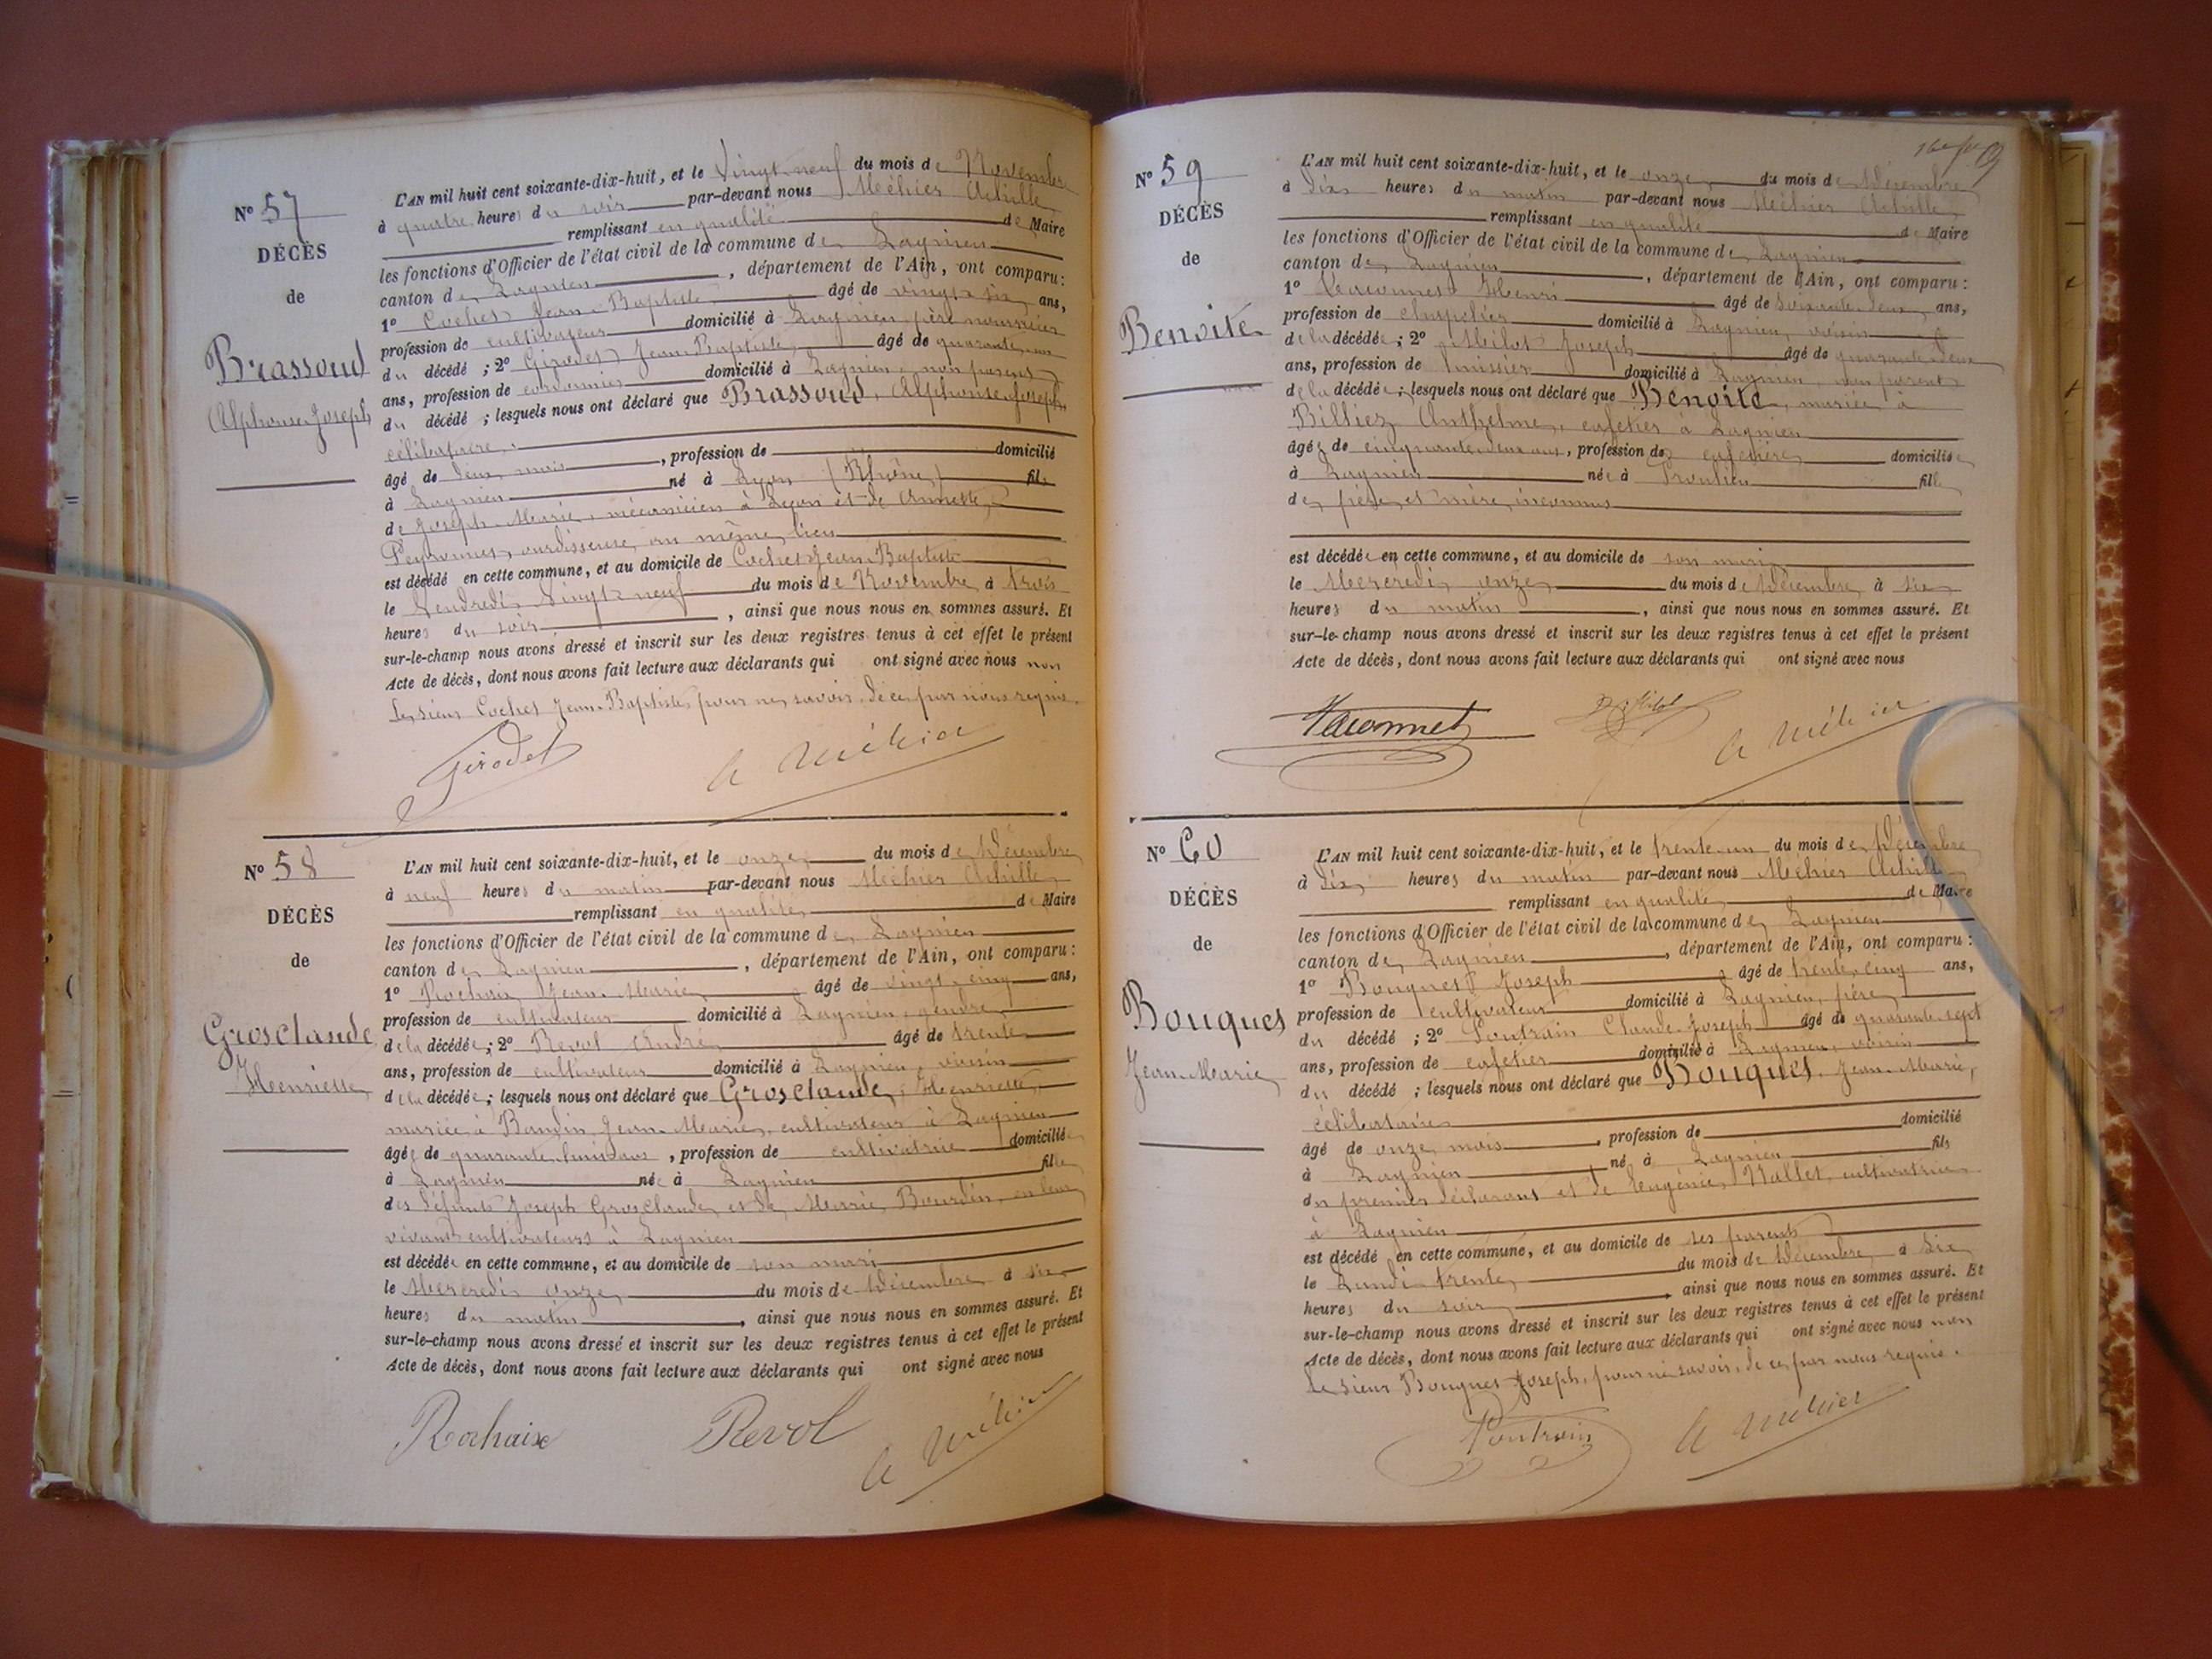 N° 57
DÉCÈS
de
Brassoud
Alphonse Joseph
L'AN mil huit cent soixante-dix-huit, et le Vingt-neuf du mois de Novembre
à quatre heures du soir par-devant nous Méhier Achille
remplissant en qualité de Maire
les fonctions d'Officier de l'état civil de la commune de Lagnieu
canton de Lagnieu, département de l'Ain, ont comparu :
1° Cochet Jean-Baptiste âgé de vingt-six ans,
profession de cultivateur domicilié à Lagnieu, père nourricier
du décédé ; 2° Girodet Jean-Baptiste, âgé de quarante-un
ans, profession de cordonnier domicilié à Lagnieu, non parent
du décédé ; lesquels nous ont déclaré que Brassoud, Alphonse Joseph
célibataire,
âgé de deux mois, profession de domicilié
à Lagnieu né à Lyon (Rhône) fils
de Joseph-Marie, mécanicien à Lyon et de Annette
ourdisseuse, au même lieu
est décédé en cette commune, et au domicile de Cochet Jean-Baptiste
le Vendredi Vingt-neuf du mois de Novembre à trois
heures du soir, ainsi que nous nous en sommes assuré. Et
sur-le-champ nous avons dressé et inscrit sur les deux registres tenus à cet effet le présent
Acte de décès, dont nous avons fait lecture aux déclarants qui ont signé avec nous non
le sieur Cochet Jean-Baptiste, pour ne savoir, de ce par nous requis.
Girodet A Méhier
N° 58
DÉCÈS
de
Grosclaude
Henriette
L'AN mil huit cent soixante-dix-huit, et le onze du mois de Décembre
à neuf heures du matin par-devant nous Méhier Achille
remplissant en qualité de Maire
les fonctions d'Officier de l'état civil de la commune de Lagnieu
canton de Lagnieu, département de l'Ain, ont comparu :
1° Rochaix Jean-Marie âgé de vingt-cinq ans,
profession de cultivateur domicilié à Lagnieu, gendre
de la décédée ; 2° Revol André âgé de trente
ans, profession de cultivateur domicilié à Lagnieu, voisin
de la décédée ; lesquels nous ont déclaré que Grosclaude, Henriette,
mariée à Baudin Jean-Marie, cultivateur à Lagnieu
âgée de quarante-huit ans, profession de cultivatrice domiciliée
à Lagnieu née à Lagnieu fille
des défunts Joseph Grosclaude et de Marie Bourdin, en leur
vivant cultivateurs à Lagnieu
est décédée en cette commune, et au domicile de son mari
le Mercredi onze du mois de Décembre à six
heures du matin, ainsi que nous nous en sommes assuré. Et
sur-le-champ nous avons dressé et inscrit sur les deux registres tenus à cet effet le présent
Acte de décès, dont nous avons fait lecture aux déclarants qui ont signé avec nous
Rochaix Revol A Méhier
N° 59
DÉCÈS
de
Benoite
L'AN mil huit cent soixante-dix-huit, et le onze du mois de Décembre
à dix heures du matin par-devant nous Méhier Achille
remplissant en qualité de Maire
les fonctions d'Officier de l'état civil de la commune de Lagnieu
canton de Lagnieu, département de l'Ain, ont comparu :
1° Vaconnet Henri âgé de soixante-deux ans,
profession de chapelier domicilié à Lagnieu, voisin
de la décédée ; 2° Milot Joseph âgé de quarante-deux
ans, profession de huissier domicilié à Lagnieu, non parent
de la décédée ; lesquels nous ont déclaré que Benoite, mariée à
Billiez Anthelme, cafetier à Lagnieu
âgée de cinquante-deux ans, profession de cafetière domiciliée
à Lagnieu née à fille
de père et mère inconnus
est décédée en cette commune, et au domicile de son mari
le Mercredi onze du mois de Décembre à six
heures du matin, ainsi que nous nous en sommes assuré. Et
sur-le-champ nous avons dressé et inscrit sur les deux registres tenus à cet effet le présent
Acte de décès, dont nous avons fait lecture aux déclarants qui ont signé avec nous
Vaconnet Milot A Méhier
N° 60
DÉCÈS
de
Bouquet
Jean-Marie
L'AN mil huit cent soixante-dix-huit, et le trente-un du mois de Décembre
à dix heures du matin par-devant nous Méhier Achille
remplissant en qualité de Maire
les fonctions d'Officier de l'état civil de la commune de Lagnieu
canton de Lagnieu, département de l'Ain, ont comparu :
1° Bouquet Joseph âgé de trente-cinq ans,
profession de cultivateur domicilié à Lagnieu, père
du décédé ; 2° Pontrain Claude-Joseph âgé de quarante-sept
ans, profession de cafetier domicilié à Lagnieu, voisin
du décédé ; lesquels nous ont déclaré que Bouquet, Jean-Marie,
célibataire
âgé de onze mois, profession de domicilié
à Lagnieu né à Lagnieu fils
du premier déclarant et de Eugénie Nallet, cultivatrice
à Lagnieu
est décédé en cette commune, et au domicile de ses parents
le Lundi trente du mois de Décembre à six
heures du soir, ainsi que nous nous en sommes assuré. Et
sur-le-champ nous avons dressé et inscrit sur les deux registres tenus à cet effet le présent
Acte de décès, dont nous avons fait lecture aux déclarants qui ont signé avec nous non
le sieur Bouquet Joseph, pour ne savoir, de ce par nous requis.
Pontrain A Méhier